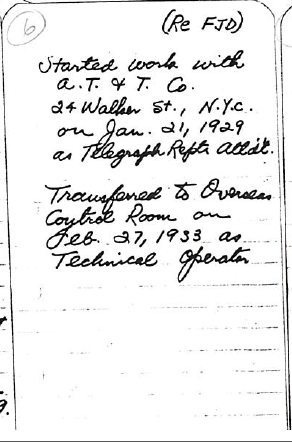 6
(Re FJD)
Started work with
A.T. & T. Co.
24 Walker St., N.Y.C.
on Jan. 21, 1929
as Telegraph Reptr Att'd't.
Transferred to Overseas
Control Room on
Feb. 27, 1933 as
Technical Operator